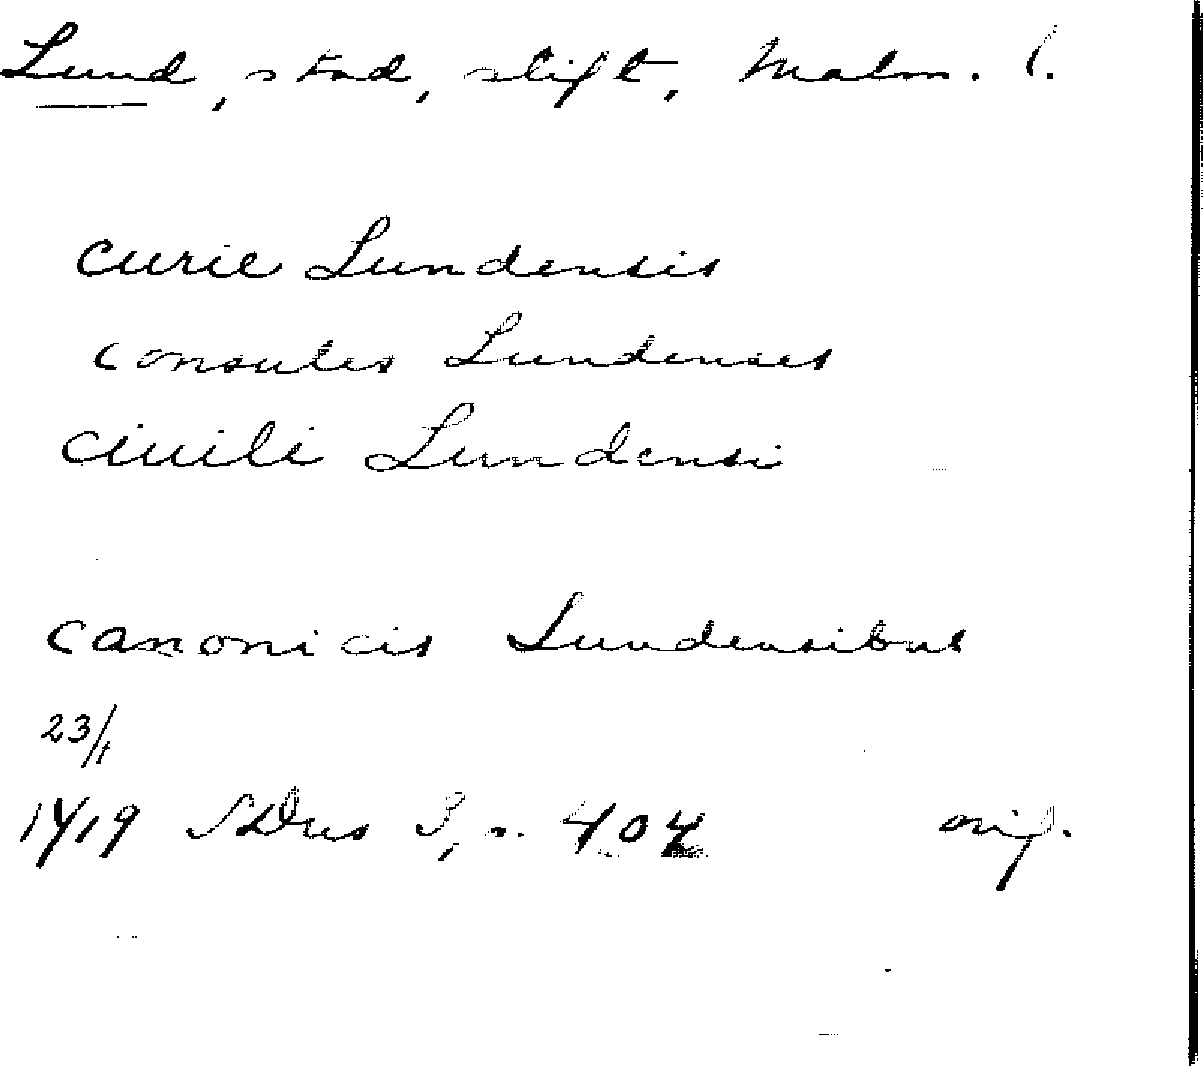 Lund, stad, stift, Malm. l.
curie Lundensis
consules Lundenses
ciuili Lundensi
canonicis Lundensibus
23/1
1419 SDns 3, s. 404 orig.